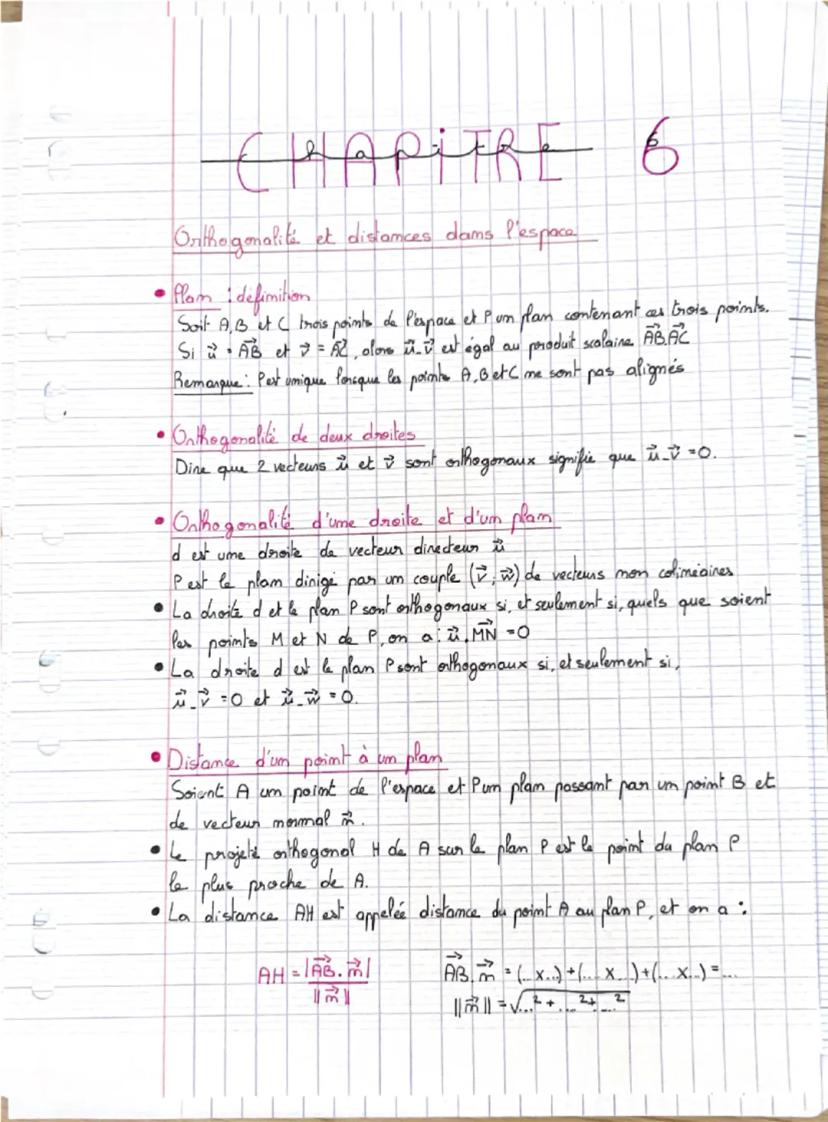 CHAPITRE 6
Orthogonalité et distances dans l'espace
• Plan : définition
Soit A, B et C trois points de l'espace et P un plan contenant ces trois points.
Si u⃗ = AB⃗ et v⃗ = AC⃗, alors u⃗.v⃗ est égal au produit scalaire AB⃗.AC⃗
Remarque : P est unique lorsque les points A, B et C ne sont pas alignés
• Orthogonalité de deux droites
Dire que 2 vecteurs u⃗ et v⃗ sont orthogonaux signifie que u⃗.v⃗ = 0.
• Orthogonalité d'une droite et d'un plan
d est une droite de vecteur directeur u⃗
P est le plan dirigé par un couple (v⃗ ; w⃗) de vecteurs non colinéaires
• La droite d et le plan P sont orthogonaux si, et seulement si, quels que soient
les points M et N de P, on a : u⃗.MN⃗ = 0
• La droite d et le plan P sont orthogonaux si, et seulement si,
u⃗.v⃗ = 0 et u⃗.w⃗ = 0.
• Distance d'un point à un plan
Soient A un point de l'espace et P un plan passant par un point B et
de vecteur normal n⃗.
• Le projeté orthogonal H de A sur le plan P est le point du plan P
le plus proche de A.
• La distance AH est appelée distance du point A au plan P, et on a :
AH = |AB⃗.n⃗| / ||n⃗||
AB⃗.n⃗ = (...x...)+(...x...)+(...x...) = ...
||n⃗|| = √...² + ...² + ...²